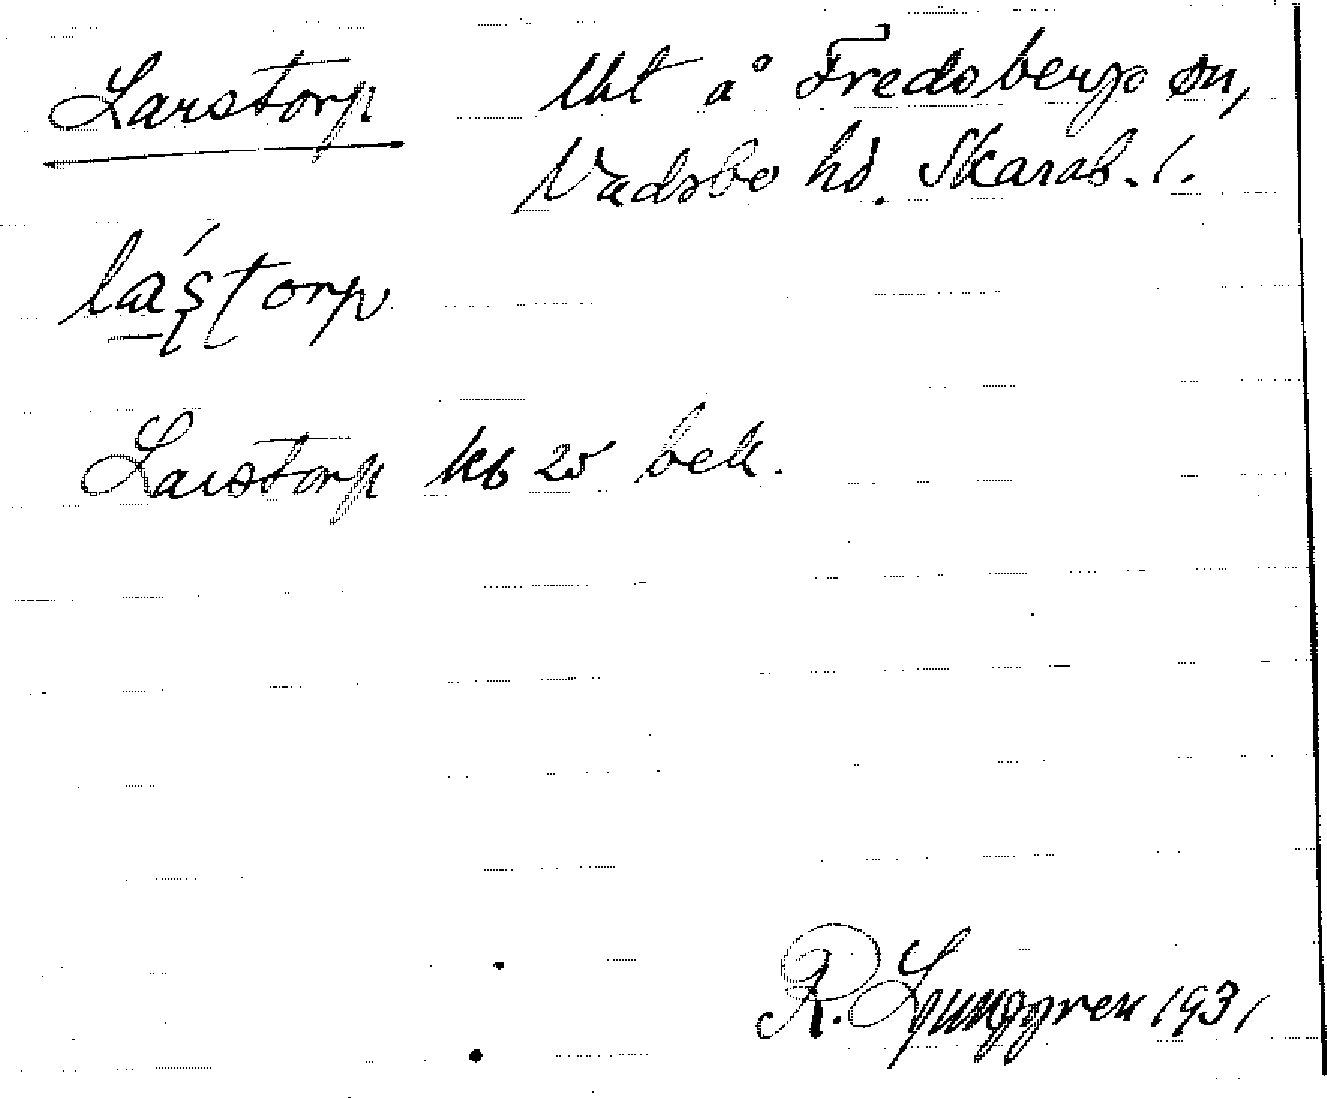 Larstorp Ut å Fredsbergs sn,
Vadsbo hd. Skarab. l.
lás̩torp
Larstorp kb 25 bek.
R. Ljunggren 1931